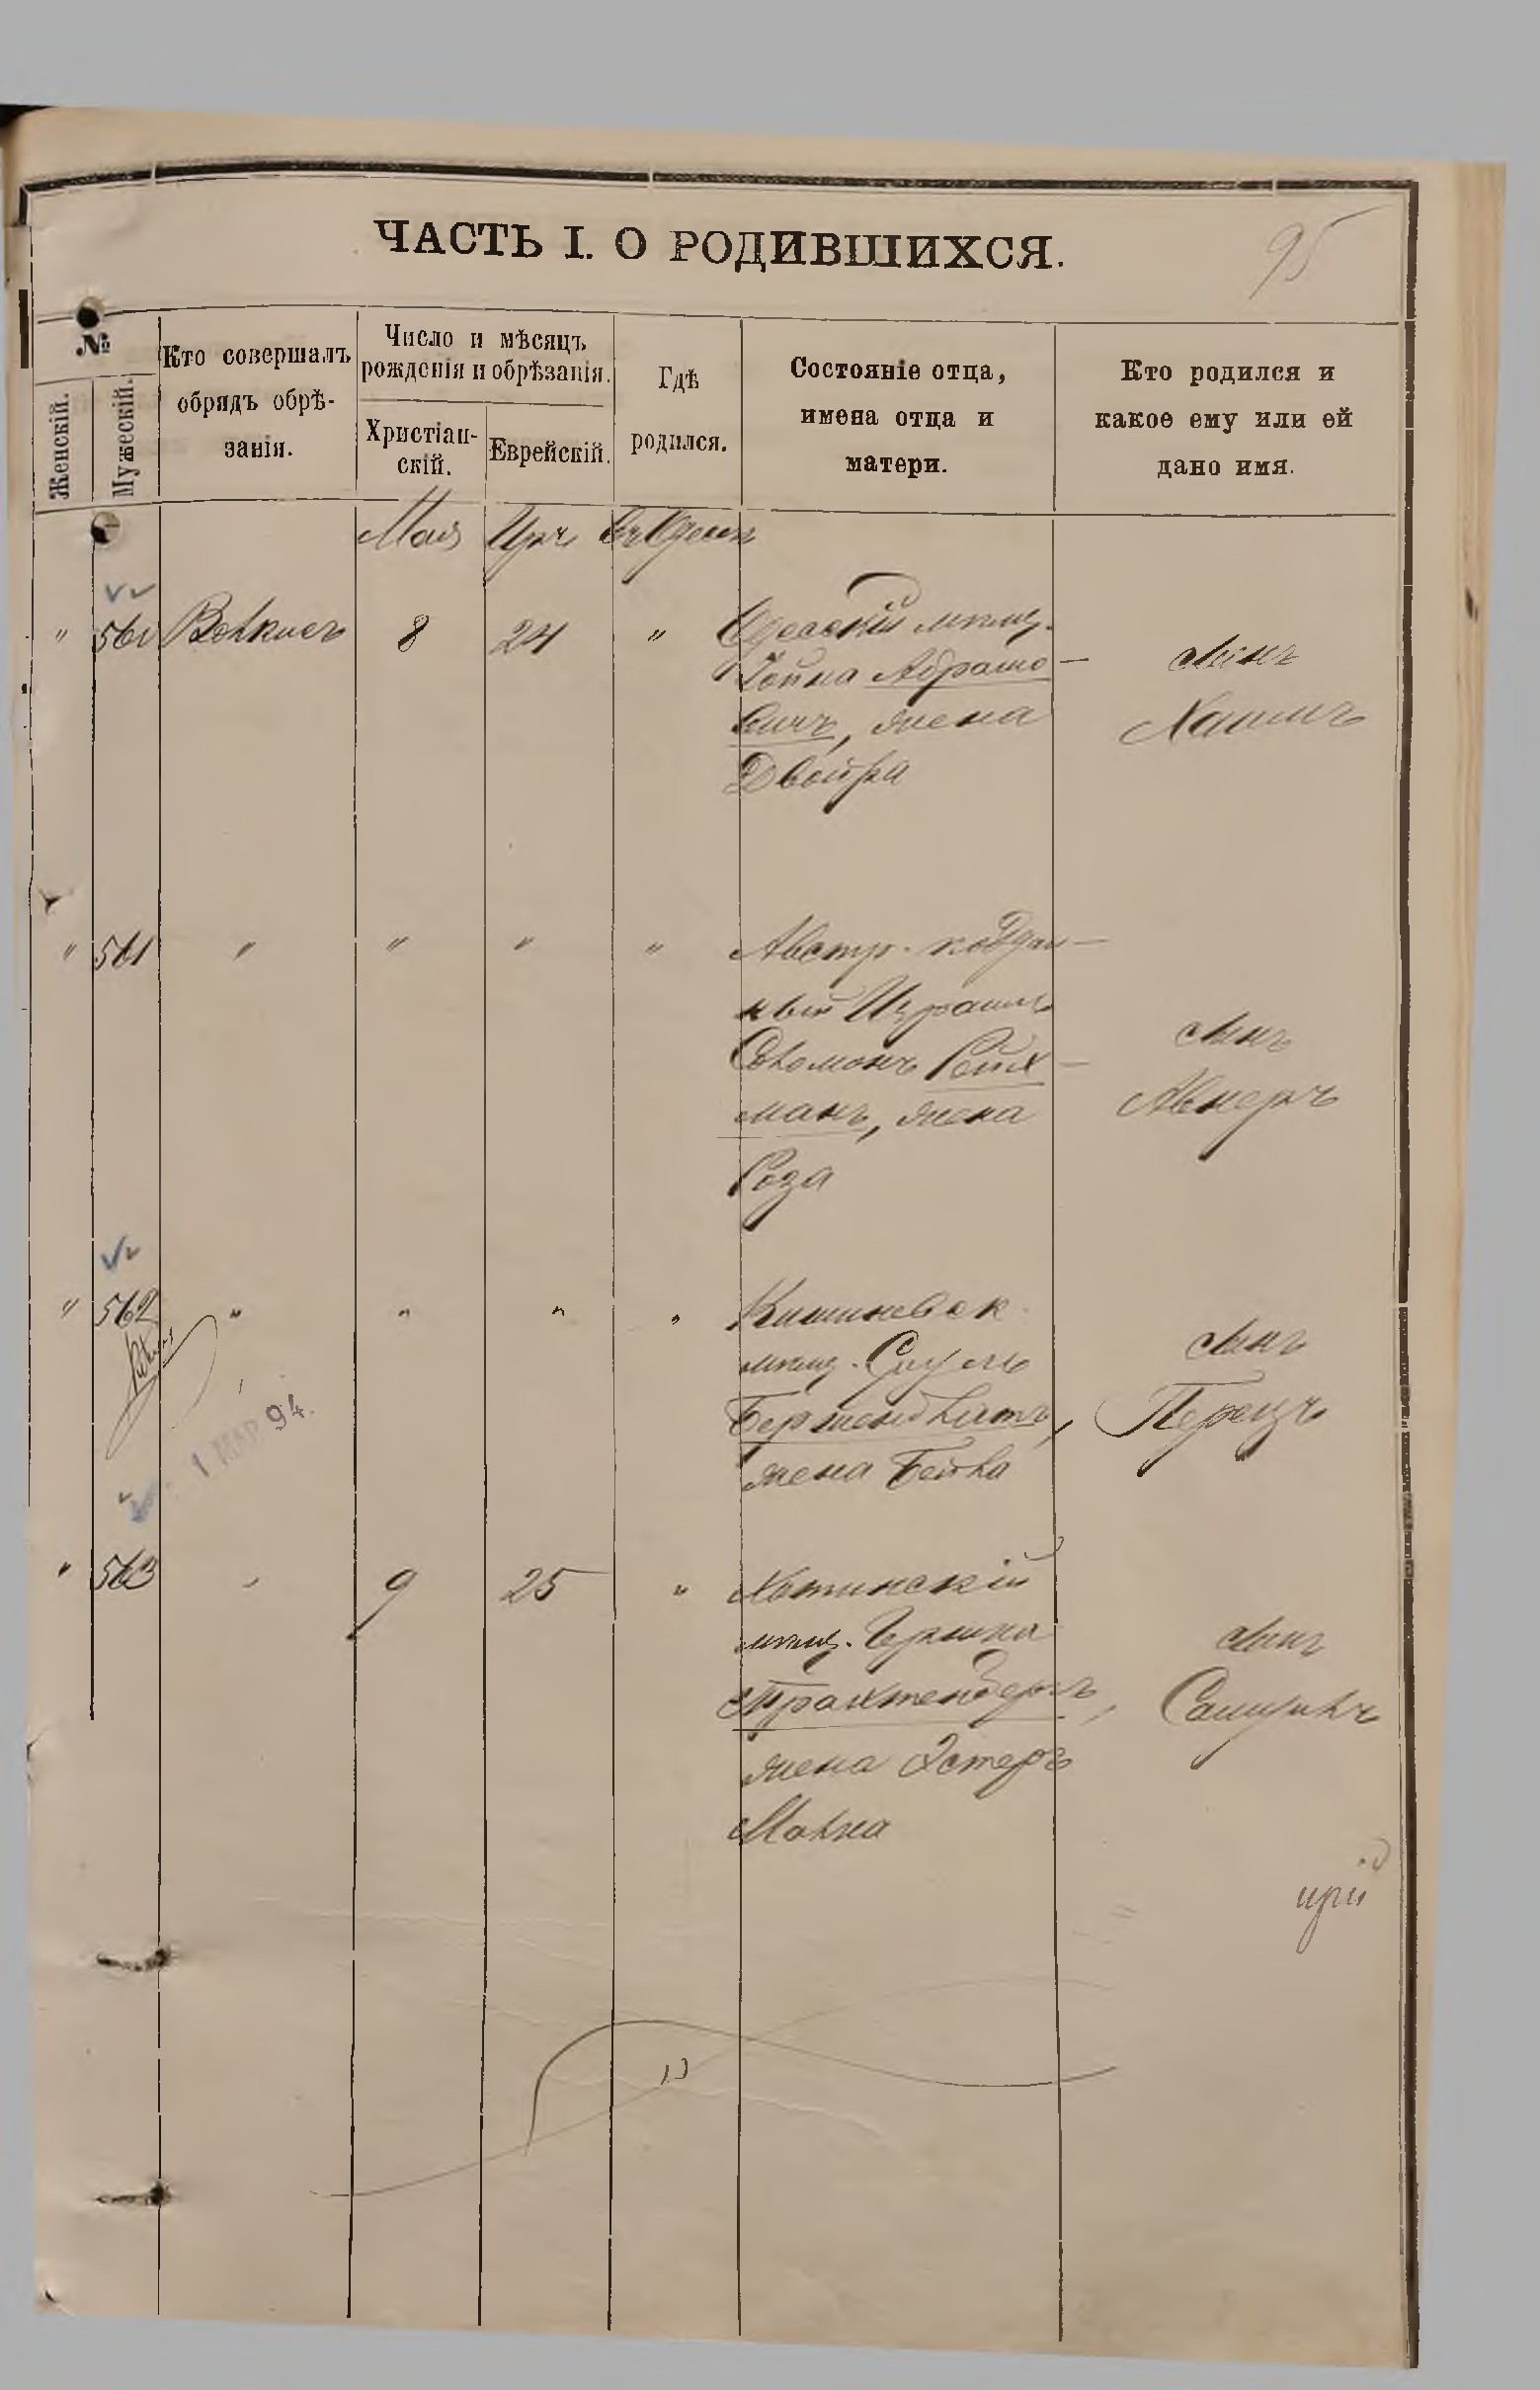 ЧАСТЬ I. О РОДИВШИХСЯ.
95
№
Женскій.
Мужескій.
Кто совершалъ
обрядъ обрѣ-
занія.
Число и мѣсяцъ
рожденія и обрѣзанія.
Христіан-
скій.
Еврейскій.
Гдѣ
родился.
Состояніе отца,
имена отца и
матери.
Кто родился и
какое ему или ей
дано имя.
Мая Іиръ въ Одессѣ
" 560 8 24 " Одесскій мѣщ.
Іойна Абрамо-
вичъ, жена
Двойра
сынъ
Хаимъ
" 561 " " " " Австр. поддан-
ный Израиль
Соломонъ Рейх-
манъ, жена
Роза
сынъ
Авнеръ
" 562 " " " " Кишиневск.
мѣщ. Сруль
жена Бейла
сынъ
Перецъ
1 МАР 94.
" 563 " 9 25 " Хотинскій
мѣщ. Гершка
Трахтенбергъ,
жена Эстеръ
Малка
сынъ
Самуилъ